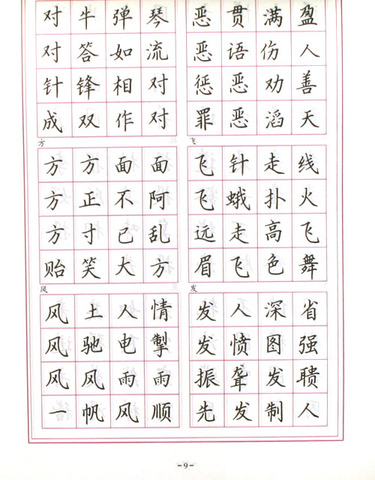 对牛弹琴
对答如流
针锋相对
成双作对
恶贯满盈
恶语伤人
惩恶劝善
罪恶滔天
方
方方面面
方正不阿
方寸已乱
贻笑大方
飞
飞针走线
飞蛾扑火
远走高飞
眉飞色舞
风
风土人情
风驰电掣
风风雨雨
一帆风顺
发
发人深省
发愤图强
振聋发聩
先发制人
-9-